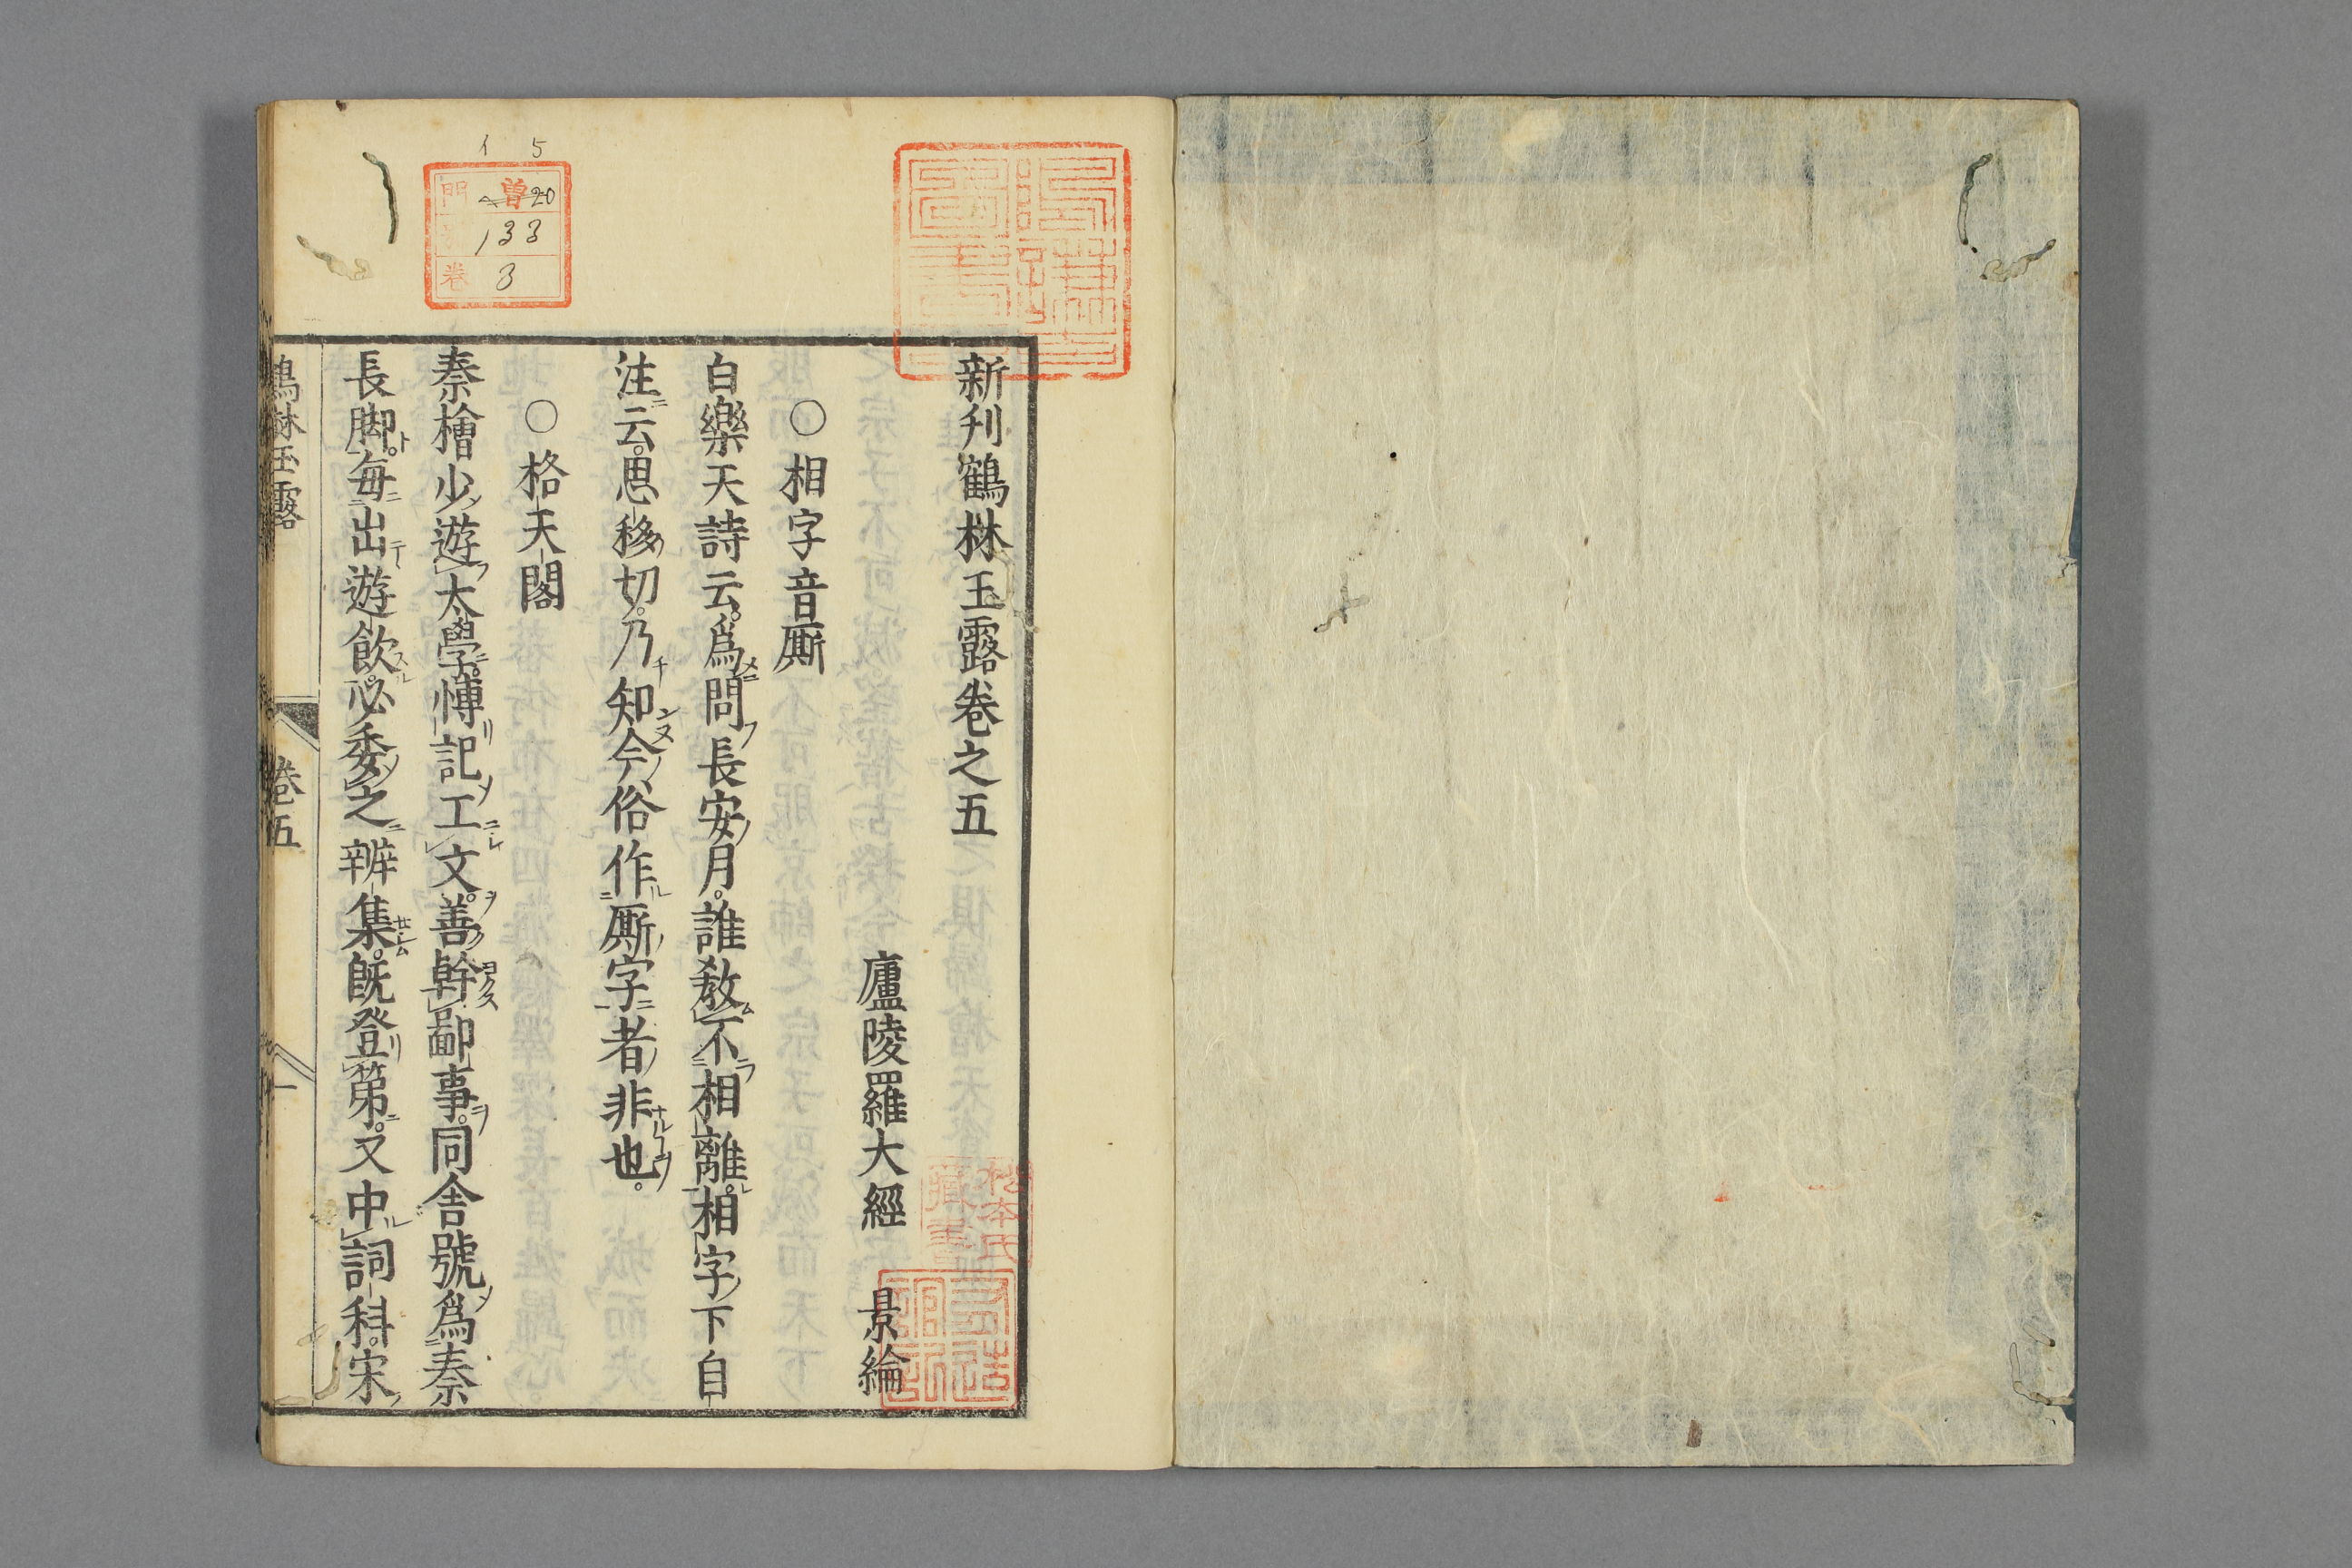 新刋鶴林玉露卷之五
廬陵羅大經 景綸
○相字音厮
白樂天詩云。爲問長安月。誰敎不相離。相字下自
注云。思移切。乃知今俗作厮字者非也。
○格天閣
秦檜少遊太學。愽記工文。善幹鄙事。同舎號爲秦
長脚。毎出遊飮。必委之辨集。旣登第。又中詞科。宋
鶴林玉露 卷五 一
1 5
門 20
133
卷 3
松本氏
藏書